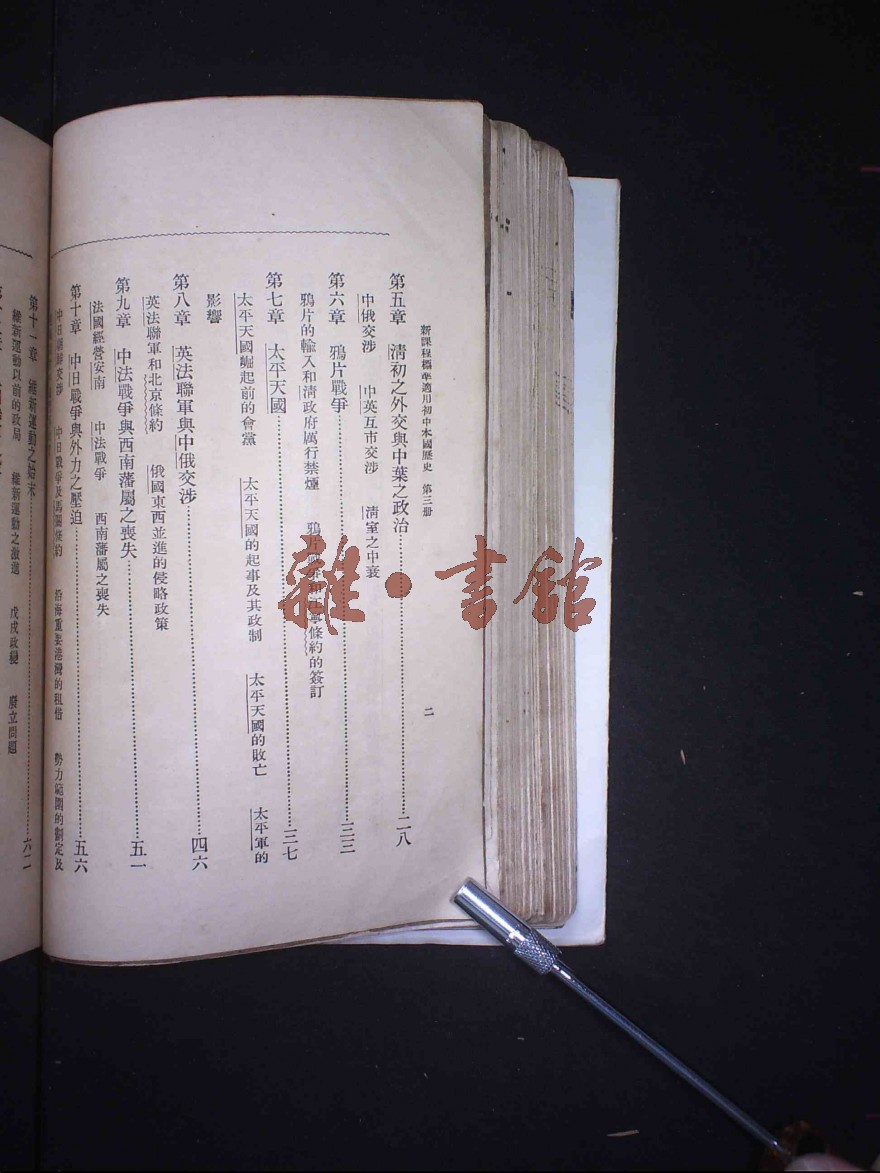 新課程標準適用初中本國歷史　第三册
二
第五章　清初之外交與中葉之政治……二八
中俄交涉　中英互市交涉　清室之中衰
第六章　鴉片戰爭……三三
鴉片的輸入和清政府厲行禁煙　鴉片戰爭和江寧條約的簽訂
第七章　太平天國……三七
太平天國崛起前的會黨　太平天國的起事及其政制　太平天國的敗亡　太平軍的
影響
第八章　英法聯軍與中俄交涉……四六
英法聯軍和北京條約　俄國東西並進的侵略政策
第九章　中法戰爭與西南藩屬之喪失……五一
法國經營安南　中法戰爭　西南藩屬之喪失
第十章　中日戰爭與外力之壓迫……五六
中日朝鮮交涉　中日戰爭及馬關條約　沿海重要港灣的租借　勢力範圍的劃定及
第十一章　維新運動之始末……六二
維新運動以前的政局　維新運動之激進　戊戌政變　廢立問題
雜·書館